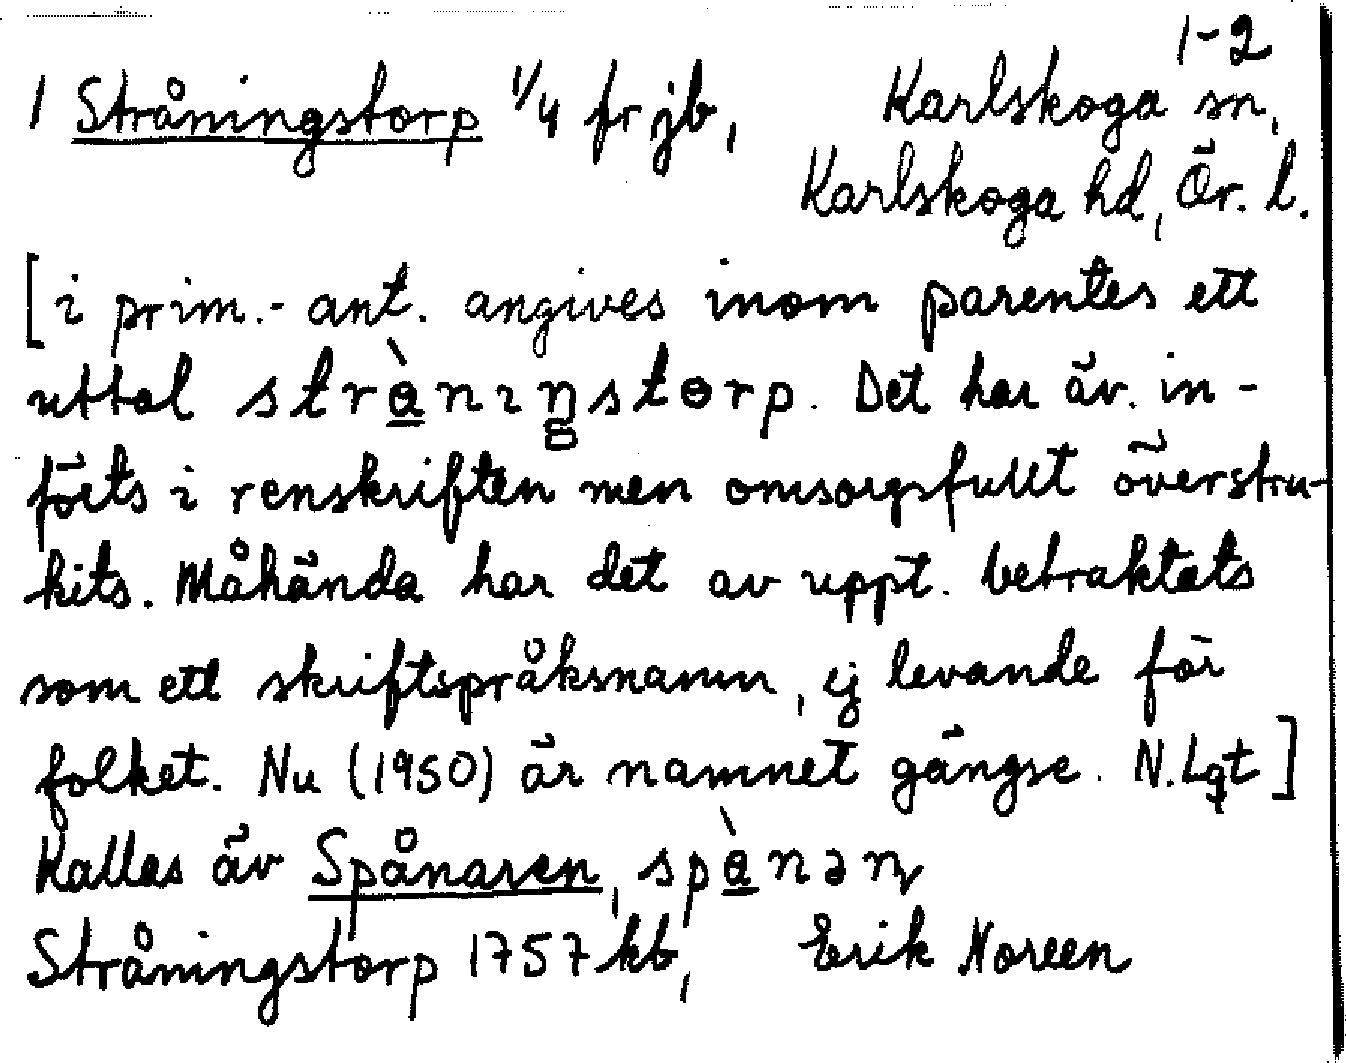 1-2
1 Stråningstorp 1/4 fr jb, Karlskoga sn,
Karlskoga hd, Ör. l.
[i prim.- ant. angives inom parentes ett
uttal strànıŋstɵrp. Det har äv. in-
förts i renskriften men omsorgsfullt överstru-
kits. Måhända har det av uppt. betraktats
som ett skriftspråksnamn, ej levande för
folket. Nu (1950) är namnet gängse. N. Lgt]
Kallas äv Spånaren, spànəɳ
Stråningstorp 1757 kb, Erik Noreen